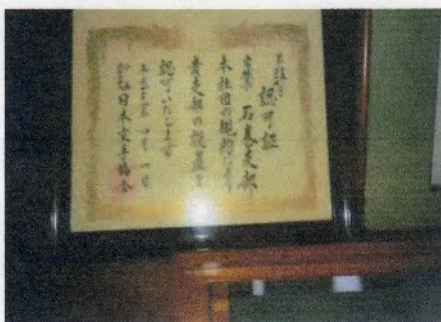 認可証
石巻支部
本社団の規約により
貴支部の設置を
認可いたします
四月一日
日本空手協会